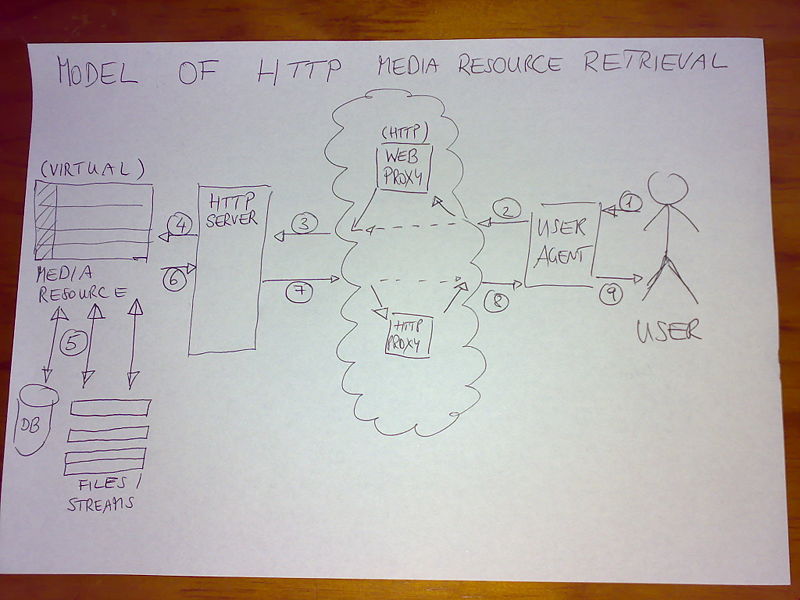 MODEL OF HTTP MEDIA RESOURCE RETRIEVAL
(VIRTUAL)
MEDIA
RESOURCE
HTTP
SERVER
(HTTP)
WEB
PROXY
HTTP
PROXY
USER
AGENT
USER
1
2
3
4
5
6
7
8
9
DB
FILES/
STREAMS